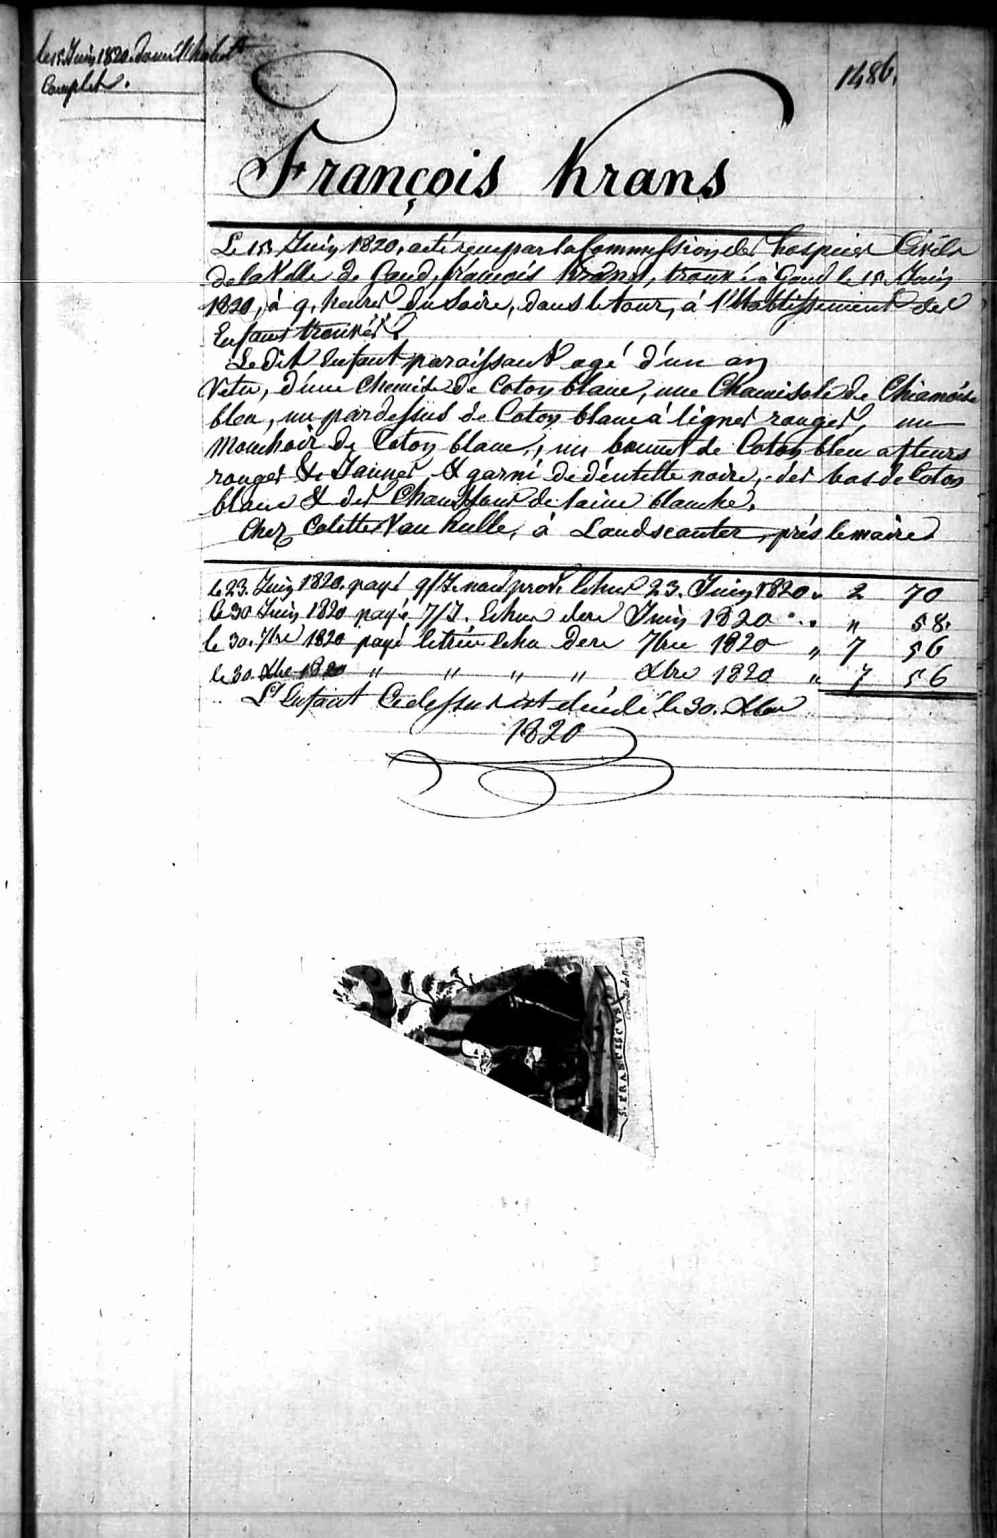 le 15 Juin 1820. donné l'habilt
Complet.
1486.
François Krans
Le 15 Juin 1820. a été reçu par la Commission des hospices Civils
de la Ville de Gand, françois Krans, trouvé à Gand le 15 Juin
1820, à 9. heures du Soire, dans le tour, à l'Etablissement des
Enfans trouvés.
Le dit Enfant paraissant agé d'un an
Vetu, d'une Chemise de Coton blanc, une Chamisole de Chiamoise
bleu, un pardessus de Coton blanc à lignes rouges, un
Mouchoir de Coton blanc, un bonnet de Coton bleu a fleurs
rouges & Jaunes & garni de déntelle noire, des bas de Coton
blanc & des Chaussons de laine blanche.
Chez Colette Van hulle, à Landscauter, prés le maire
le 23. Juin 1820. payé 9/J. échus 23. Juin 1820 „ 2 70
le 30 Juin 1820 payé 7/J. Echus dere Juin 1820 „ „ 58.
le 30. 7bre 1820 payé le trim echu Dere 7bre 1820 „ 7 56
le 30. Xbre 1820 „ „ „ „ Xbre 1820 „ 7 56
L'Enfant Cidessus est décédé le 30. Xbre
1820
S. FRANCISCVS